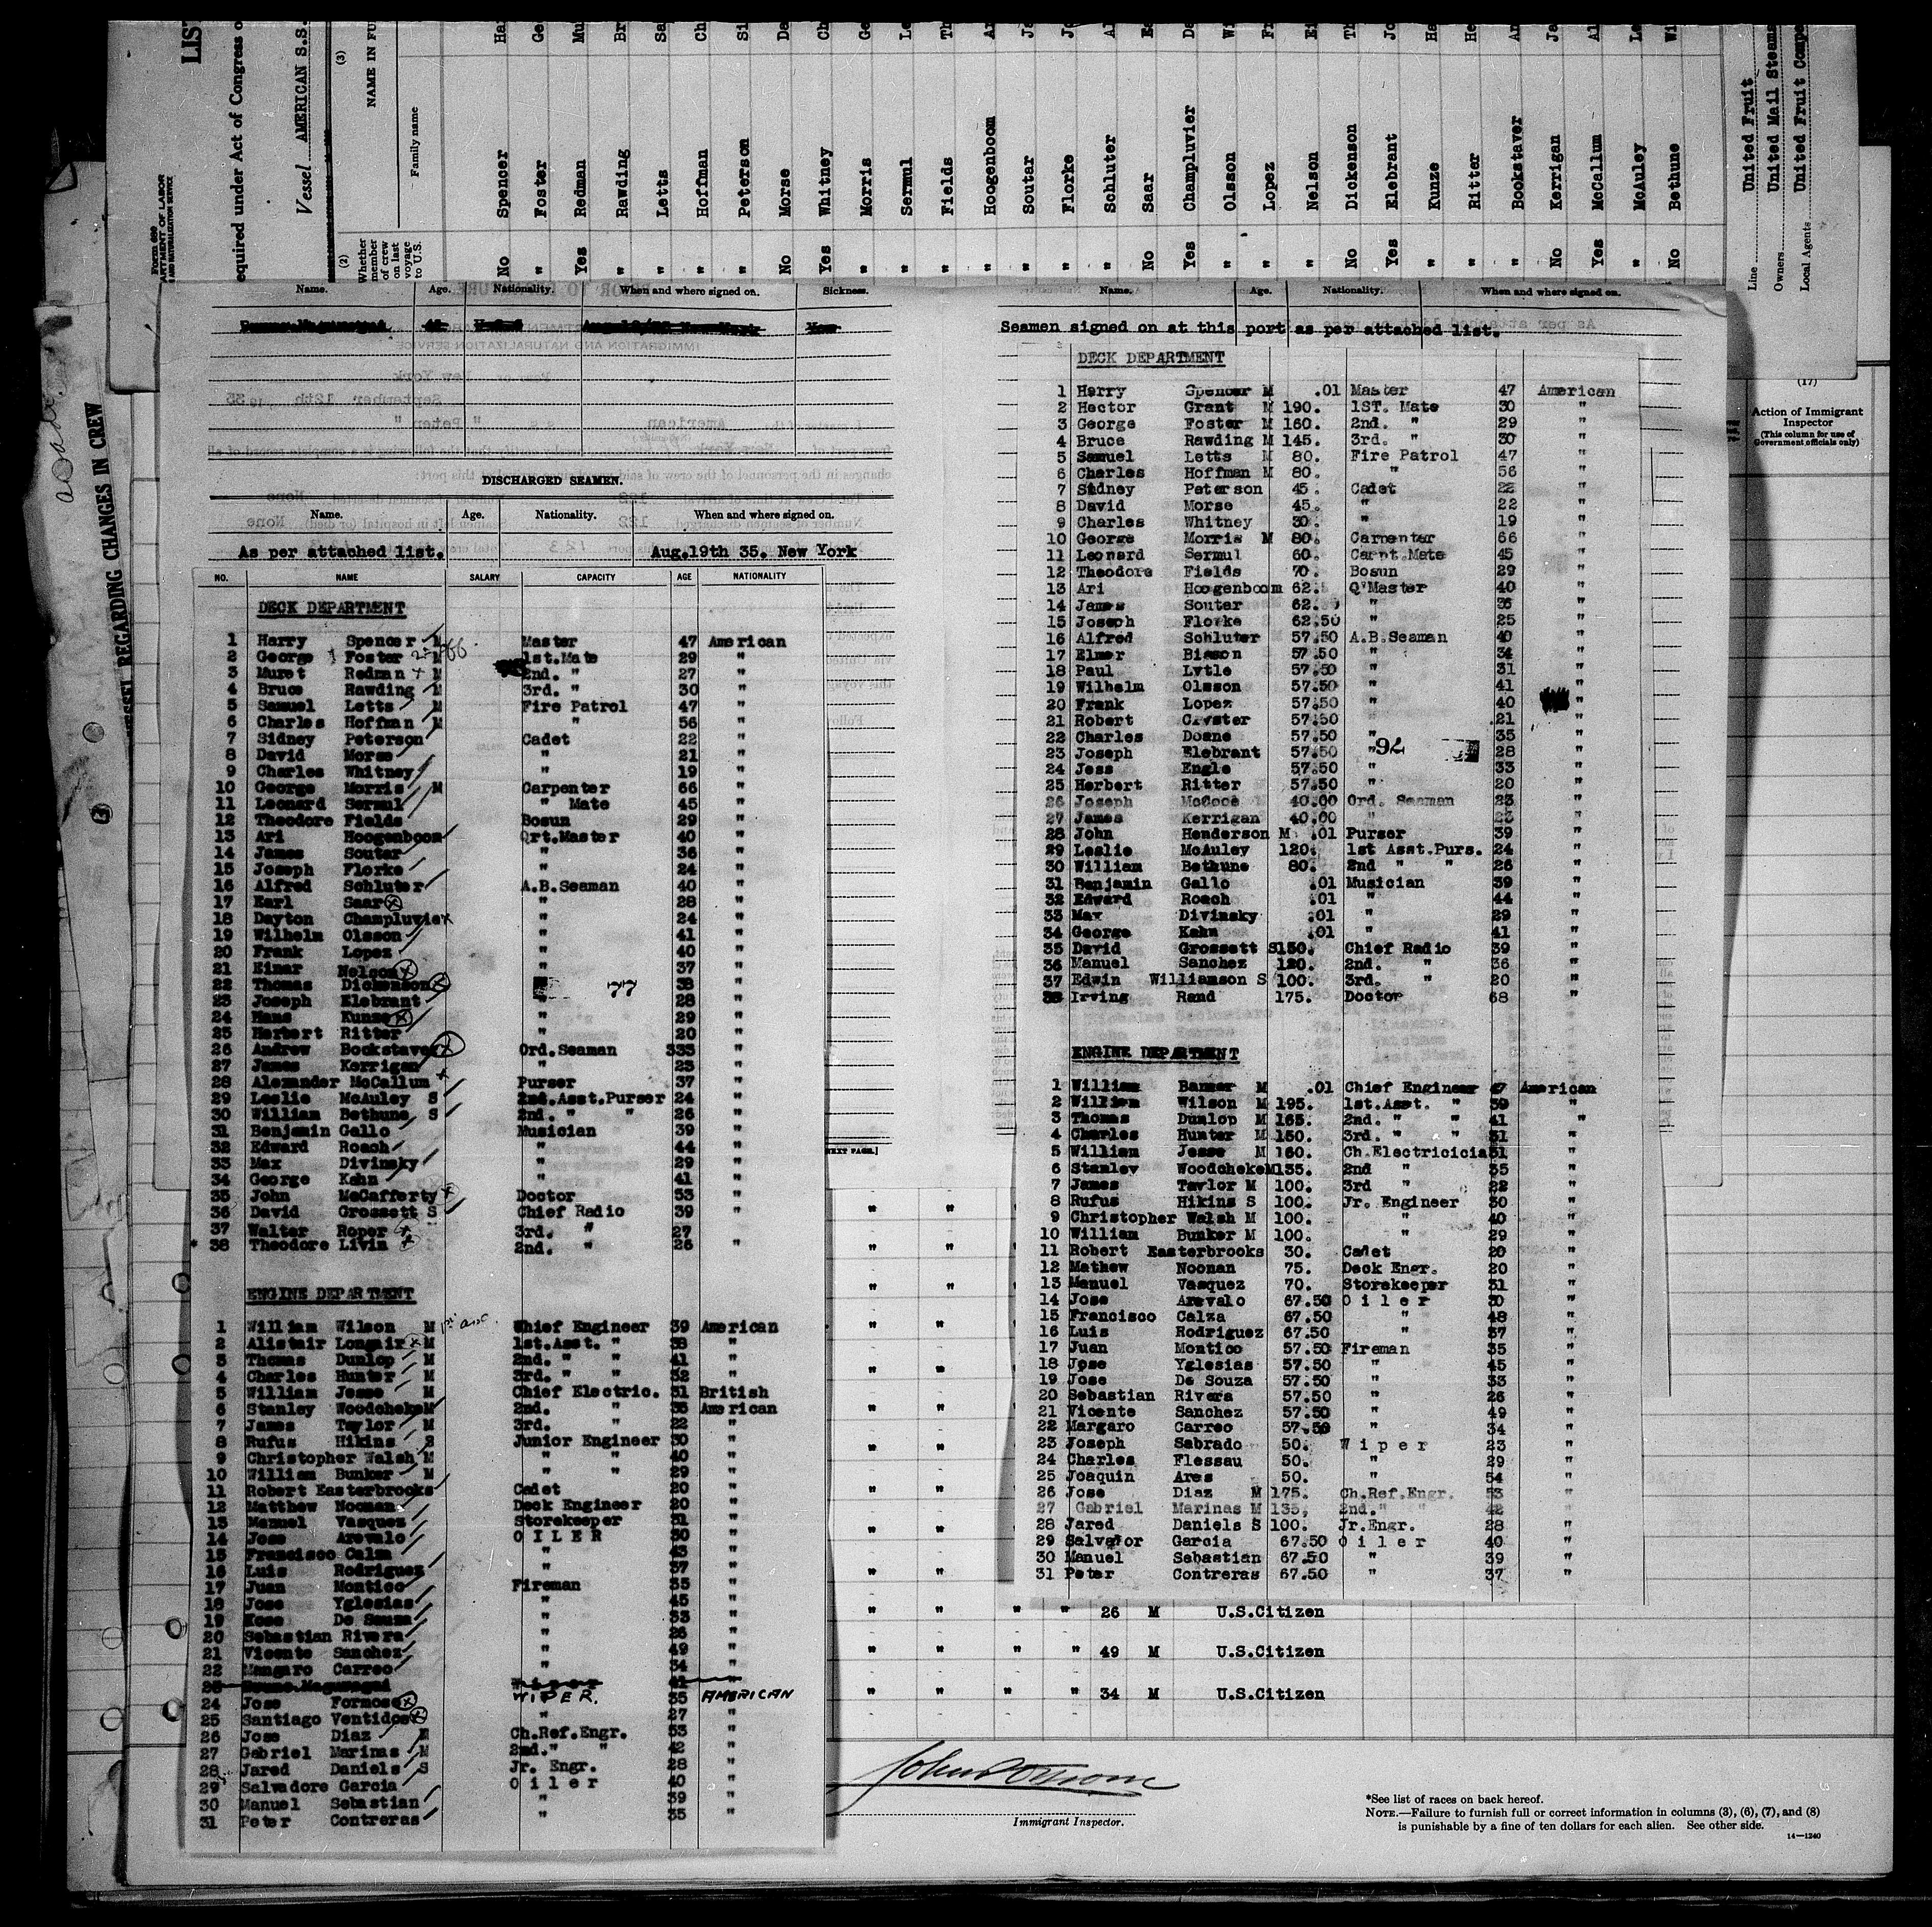 LIS
equired under Act of Congress o
Vessel AMERICAN S.S.
Form 689
ARTMENT OF LABOR
AND NATURALIZATION SERVICE
(3)
NAME IN FU
Family name
(2)
Whether member of crew on last voyage to U.S.
No Spencer Ha
" Foster Ge
Yes Redman Mu
" Rawding Br
" Letts Sa
" Hoffman Ch
" Peterson Si
No Morse Da
Yes Whitney Ch
" Morris Ge
" Sermul Le
" Fields Th
" Hoogenboom Ar
" Soutar Ja
" Florke Jo
" Schluter Al
No Saar Ea
Yes Champluvier Da
" Olsson Wi
" Lopez Fr
" Nelson Ei
No Dickenson Th
Yes Elebrant Jo
" Kunze Ha
" Ritter He
" Bookstaver An
No Kerrigan Ja
Yes McCallum Al
" McAuley Le
No Bethune Wi
Line United Fruit
Owners United Mail Steams
Local Agents United Fruit Compa
ESSEL REGARDING CHANGES IN CREW
Name. Age. Nationality. When and where signed on. Sickness.
DISCHARGED SEAMEN.
Name. Age. Nationality. When and where signed on.
As per attached list. Aug.19th 35. New York
NO. NAME SALARY CAPACITY AGE NATIONALITY
DECK DEPARTMENT
1 Harry Spencer M Master 47 American
2 George Foster M 1st.Mate 29 "
3 Muret Redman M 2nd. " 27 "
4 Bruce Rawding M 3rd. " 30 "
5 Samuel Letts M Fire Patrol 47 "
6 Charles Hoffman M " 56 "
7 Sidney Peterson Cadet 22 "
8 David Morse " 21 "
9 Charles Whitney " 19 "
10 George Morris M Carpenter 66 "
11 Leonard Sermul " Mate 45 "
12 Theodore Fields Bosun 29 "
13 Ari Hoogenboom Qrt.Master 40 "
14 James Soutar " 36 "
15 Joseph Florke " 24 "
16 Alfred Schluter A.B.Seaman 40 "
17 Earl Saar " 28 "
18 Dayton Champluvier " 24 "
19 Wilhelm Olsson " 41 "
20 Frank Lopez " 40 "
21 Einar Nelson " 37 "
22 Thomas Dickenson 77 38 "
23 Joseph Elebrant " 28 "
24 Hans Kunze " 29 "
25 Herbert Ritter " 20 "
26 Andrew Bookstaver Ord.Seaman 333 "
27 James Kerrigan " 23 "
28 Alexander McCallum Purser 37 "
29 Leslie McAuley S 2nd.Asst.Purser 24 "
30 William Bethune S 2nd. " " 26 "
31 Benjamin Gallo Musician 39 "
32 Edward Roach " 44 "
33 Max Divinsky " 29 "
34 George Kahn " 41 "
35 John McCafferty Doctor 53 "
36 David Grossett S Chief Radio 39 "
37 Walter Roper 3rd. " 27
38 Theodore Livin 2nd. " 26 "
ENGINE DEPARTMENT
1 William Wilson M Whief Engineer 39 American
2 Alistair Longair M 1st.Asst. " 38 "
3 Thomas Dunlop M 2nd. " " 41 "
4 Charles Hunter M 3rd. " " 32 "
5 William Jesse M Chief Electric. 31 British
6 Stanley WoodchekeM 2nd. " 35 American
7 James Taylor M 3rd. " 22 "
8 Rufus Hikins S Junior Engineer 30 "
9 Christopher Walsh M " " 40 "
10 William Bunker M " " 29 "
11 Robert Easterbrooks Cadet 20 "
12 Matthew Noonan Deck Engineer 20 "
13 Manuel Vasquez Storekeeper 31 "
14 Jose Arevalo O I L E R 30 "
15 Francisco Calza " 43 "
16 Luis Rodriguez " 37 "
17 Juan Montico Fireman 35 "
18 Jose Yglesias " 45 "
19 Kose De Souza " 33 "
20 Sebastian Rivera " 26 "
21 Vicente Sanchez " 49 "
22 Mangaro Carreo " 34 "
24 Jose Formoso WIPER. 35 AMERICAN
25 Santiago Ventidos " 27 "
26 Jose Diaz M Ch.Ref.Engr. 53 "
27 Gabriel Marinas M 2nd." " 42 "
28 Jared Daniels S Jr. Engr. 28 "
29 Salvadore Garcia O i l e r 40 "
30 Manuel Sebastian " 39 "
31 Peter Contreras " 35 "
Name. Age. Nationality. When and where signed on.
Seamen signed on at this port as per attached list.
DECK DEPARTMENT
1 Harry Spencer M .01 Master 47 American
2 Hector Grant M 190. 1ST. Mate 30 "
3 George Foster M 160. 2nd. " 29 "
4 Bruce Rawding M 145. 3rd. " 30 "
5 Samuel Letts M 80. Fire Patrol 47 "
6 Charles Hoffman M 80. " 56 "
7 Sidney Peterson 45. Cadet 22 "
8 David Morse 45. " 22 "
9 Charles Whitney 30. " 19 "
10 George Morris M 80. Carpenter 66 "
11 Leonard Sermul 60. Carpt.Mate 45 "
12 Theodore Fields 70. Bosun 29 "
13 Ari Hoogenboom 62. Q'Master 40 "
14 James Soutar 62. " 36 "
15 Joseph Florke 62.50 " 25 "
16 Alfred Schluter 57.50 A.B.Seaman 40 "
17 Elmer Bisson 57.50 " 34 "
18 Paul Lytle 57.50 " 31 "
19 Wilhelm Olsson 57.50 " 41 "
20 Frank Lopez 57.50 " 40 "
21 Robert Cryster 57.50 " 21 "
22 Charles Doane 57.50 " 35 "
23 Joseph Elebrant 57.50 " 92 28 "
24 Jess Engle 57.50 " 33 "
25 Herbert Ritter 57.50 " 20 "
26 Joseph 40.00 Ord. Seaman 23 "
27 James Kerrigan 40.00 " 23 "
28 John Henderson M .01 Purser 39 "
29 Leslie McAuley 120. 1st Asst.Purs. 24 "
30 William Bethune 80. 2nd " " 26 "
31 Benjamin Gallo .01 Musician 39 "
32 Edward Roach .01 " 44 "
33 Max Divinsky .01 " 29 "
34 George Kahn .01 " 41 "
35 David Grossett S150. Chief Radio 39 "
36 Manuel Sanchez 120. 2nd. " 36 "
37 Edwin Williamson S 100. 3rd. " 20 "
38 Irving Rand 175. Doctor 68 "
ENGINE DEPARTMENT
1 William Banzer M .01 Chief Engineer 47 American
2 William Wilson M 195. 1st.Asst. " 39 "
3 Thomas Dunlop M 165. 2nd. " " 41 "
4 Charles Hunter M 150. 3rd. " " 31 "
5 William Jesse M 160. Ch.Electricicia31 "
6 Stanley WoodchekeM135. 2nd " 35 "
7 James Taylor M 100. 3rd " 22 "
8 Rufus Hikins S 100. Jr. Engineer 30 "
9 Christopher Walsh M 100. " 40 "
10 William Bunker M 100. " 29 "
11 Robert Easterbrooks 30. Cadet 20 "
12 Mathew Noonan 75. Deck Engr. 20 "
13 Manuel Vasquez 70. Storekeeper 31 "
14 Jose Arevalo 67.50 O i l e r 30 "
15 Francisco Calza 67.50 " 48 "
16 Luis Rodriguez 67.50 " 37 "
17 Juan Montico 57.50 Fireman 35 "
18 Jose Yglesias 57.50 " 45 "
19 Jose De Souza 57.50 " 33 "
20 Sebastian Rivera 57.50 " 26 "
21 Vicente Sanchez 57.50 " 49 "
22 Margaro Carreo 57.50 " 34 "
23 Joseph Sabrado 50. W i p e r 23 "
24 Charles Flessau 50. " 29 "
25 Joaquin Ares 50. " 54 "
26 Jose Diaz M 175. Ch.Ref.Engr. 53 "
27 Gabriel Marinas M 135. 2nd." " 42 "
28 Jared Daniels S 100. Jr.Engr. 28 "
29 Salvador Garcia 67.50 O i l e r 40 "
30 Manuel Sebastian 67.50 " 39 "
31 Peter Contreras 67.50 " 37 "
NEXT PAGE.]
(17)
Action of Immigrant Inspector
(This column for use of Government officials only)
" " " " 26 M U.S.Citizen
" " " " 49 M U.S.Citizen
" " " " 34 M U.S.Citizen
Immigrant Inspector.
*See list of races on back hereof.
NOTE.—Failure to furnish full or correct information in columns (3), (6), (7), and (8)
is punishable by a fine of ten dollars for each alien. See other side.
14—1240